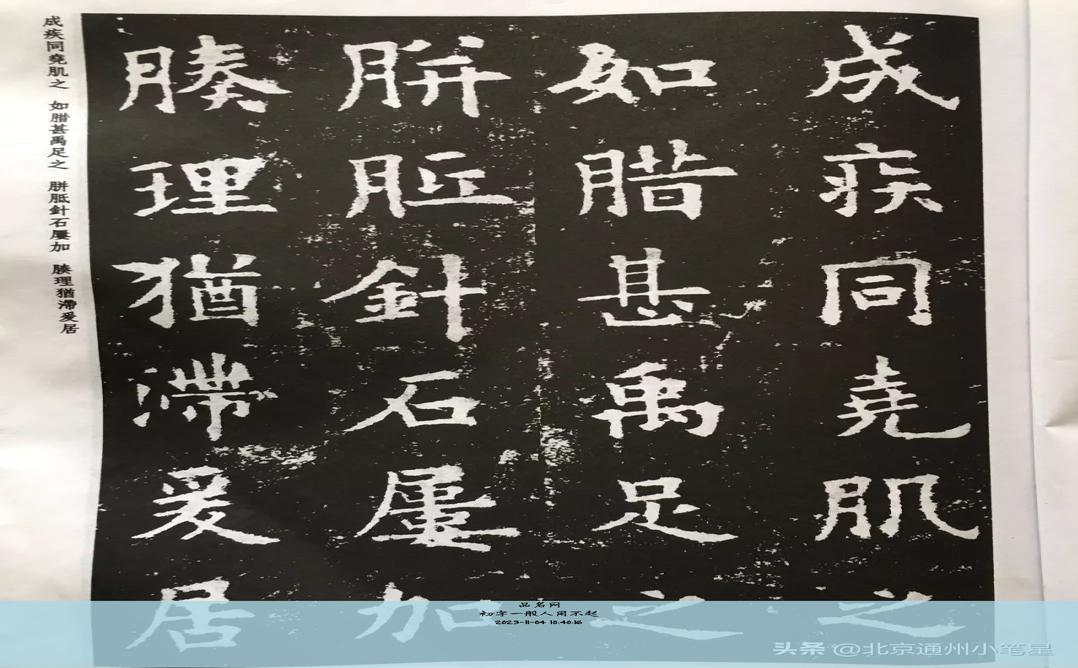 成疾同堯肌之
如腊甚禹足之
胼胝針石屢加
腠理猶滯爰居
成疾同堯肌之 如腊甚禹足之 胼胝針石屢加 腠理猶滯爰居
品名网
初字一般人用不起
2023-11-04 10:40:16
头条 @北京通州小笔星